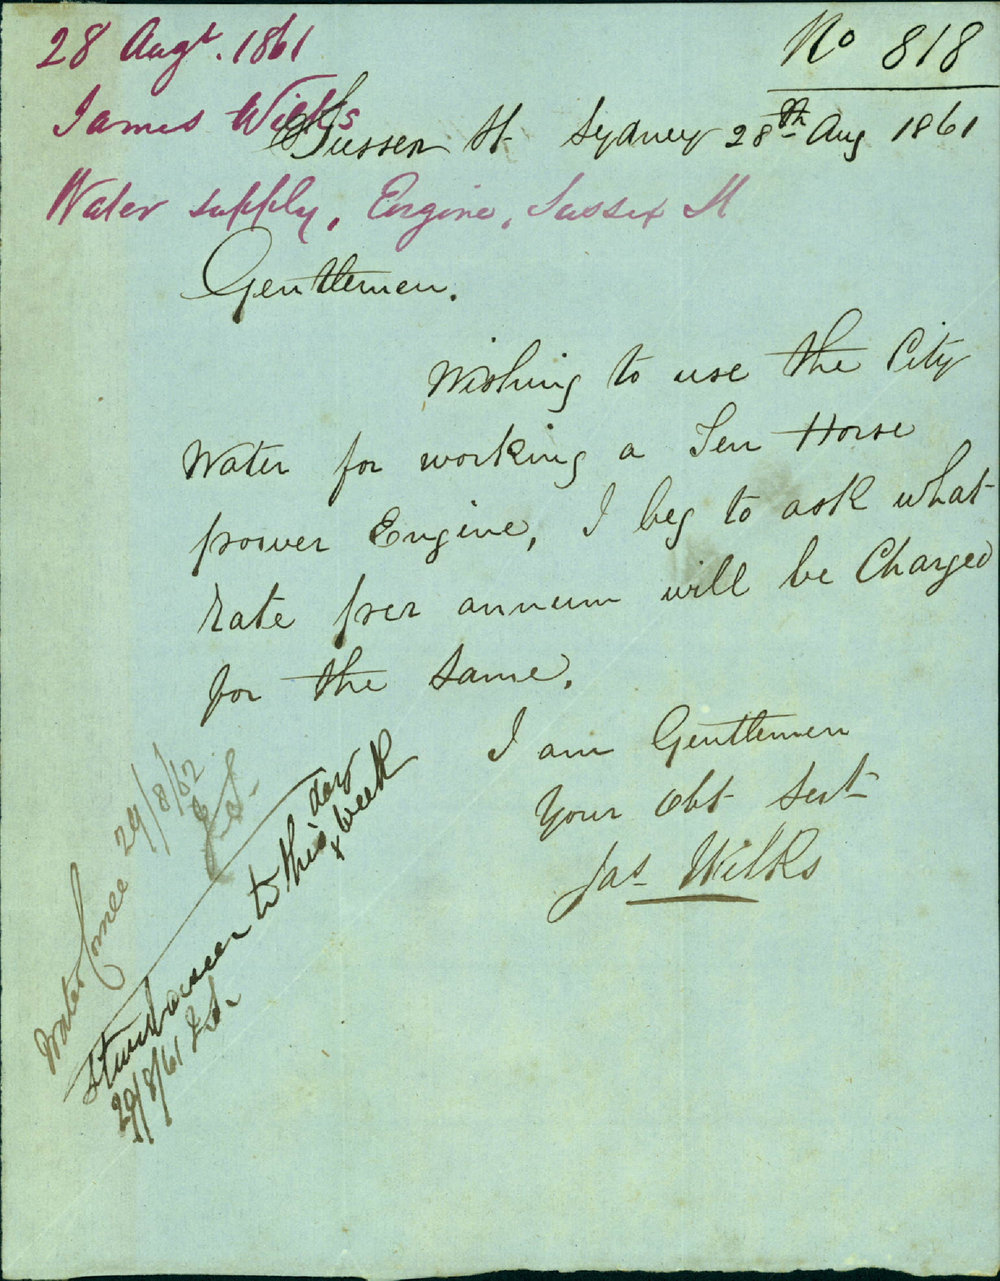 28 Augt. 1861
No 818
James Wilks
Sussex St Sydney 28th Aug 1861
Water supply, Engine, Sussex St
Gentlemen.
Wishing to use the City
Water for working a Ten Horse
power Engine, I beg to ask what
Rate per annum will be Charged
for the Same.
I am Gentlemen
Your Obt Sevt
Jas Wilks
Water Comee 29/8/62
stand over to this day
week
29/8/61